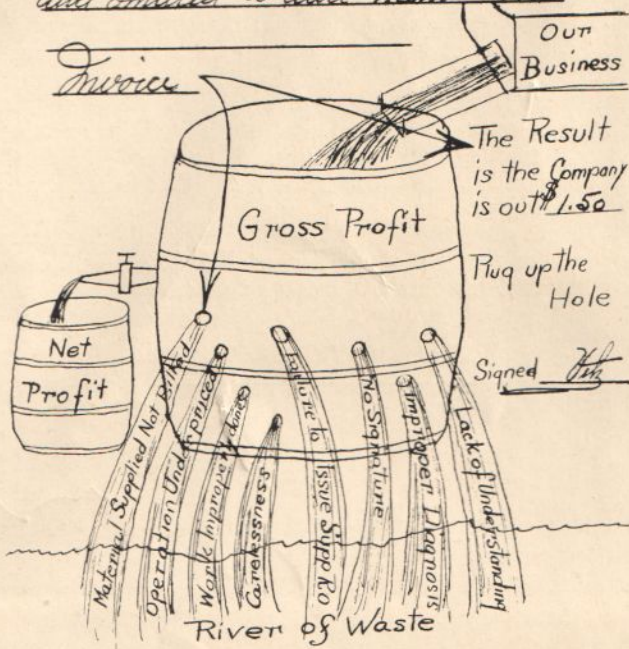 Invoice
Our
Business
The Result
is the Company
is out $1.50
Gross Profit
Plug up the
Hole
Net
Profit
Signed
Material Supplied Not Billed
Operation Underpriced
Work Improperly Done
Carelessness
Failure to Issue Supp RO
No Signature
Improper Diagnosis
Lack of Understanding
River of Waste